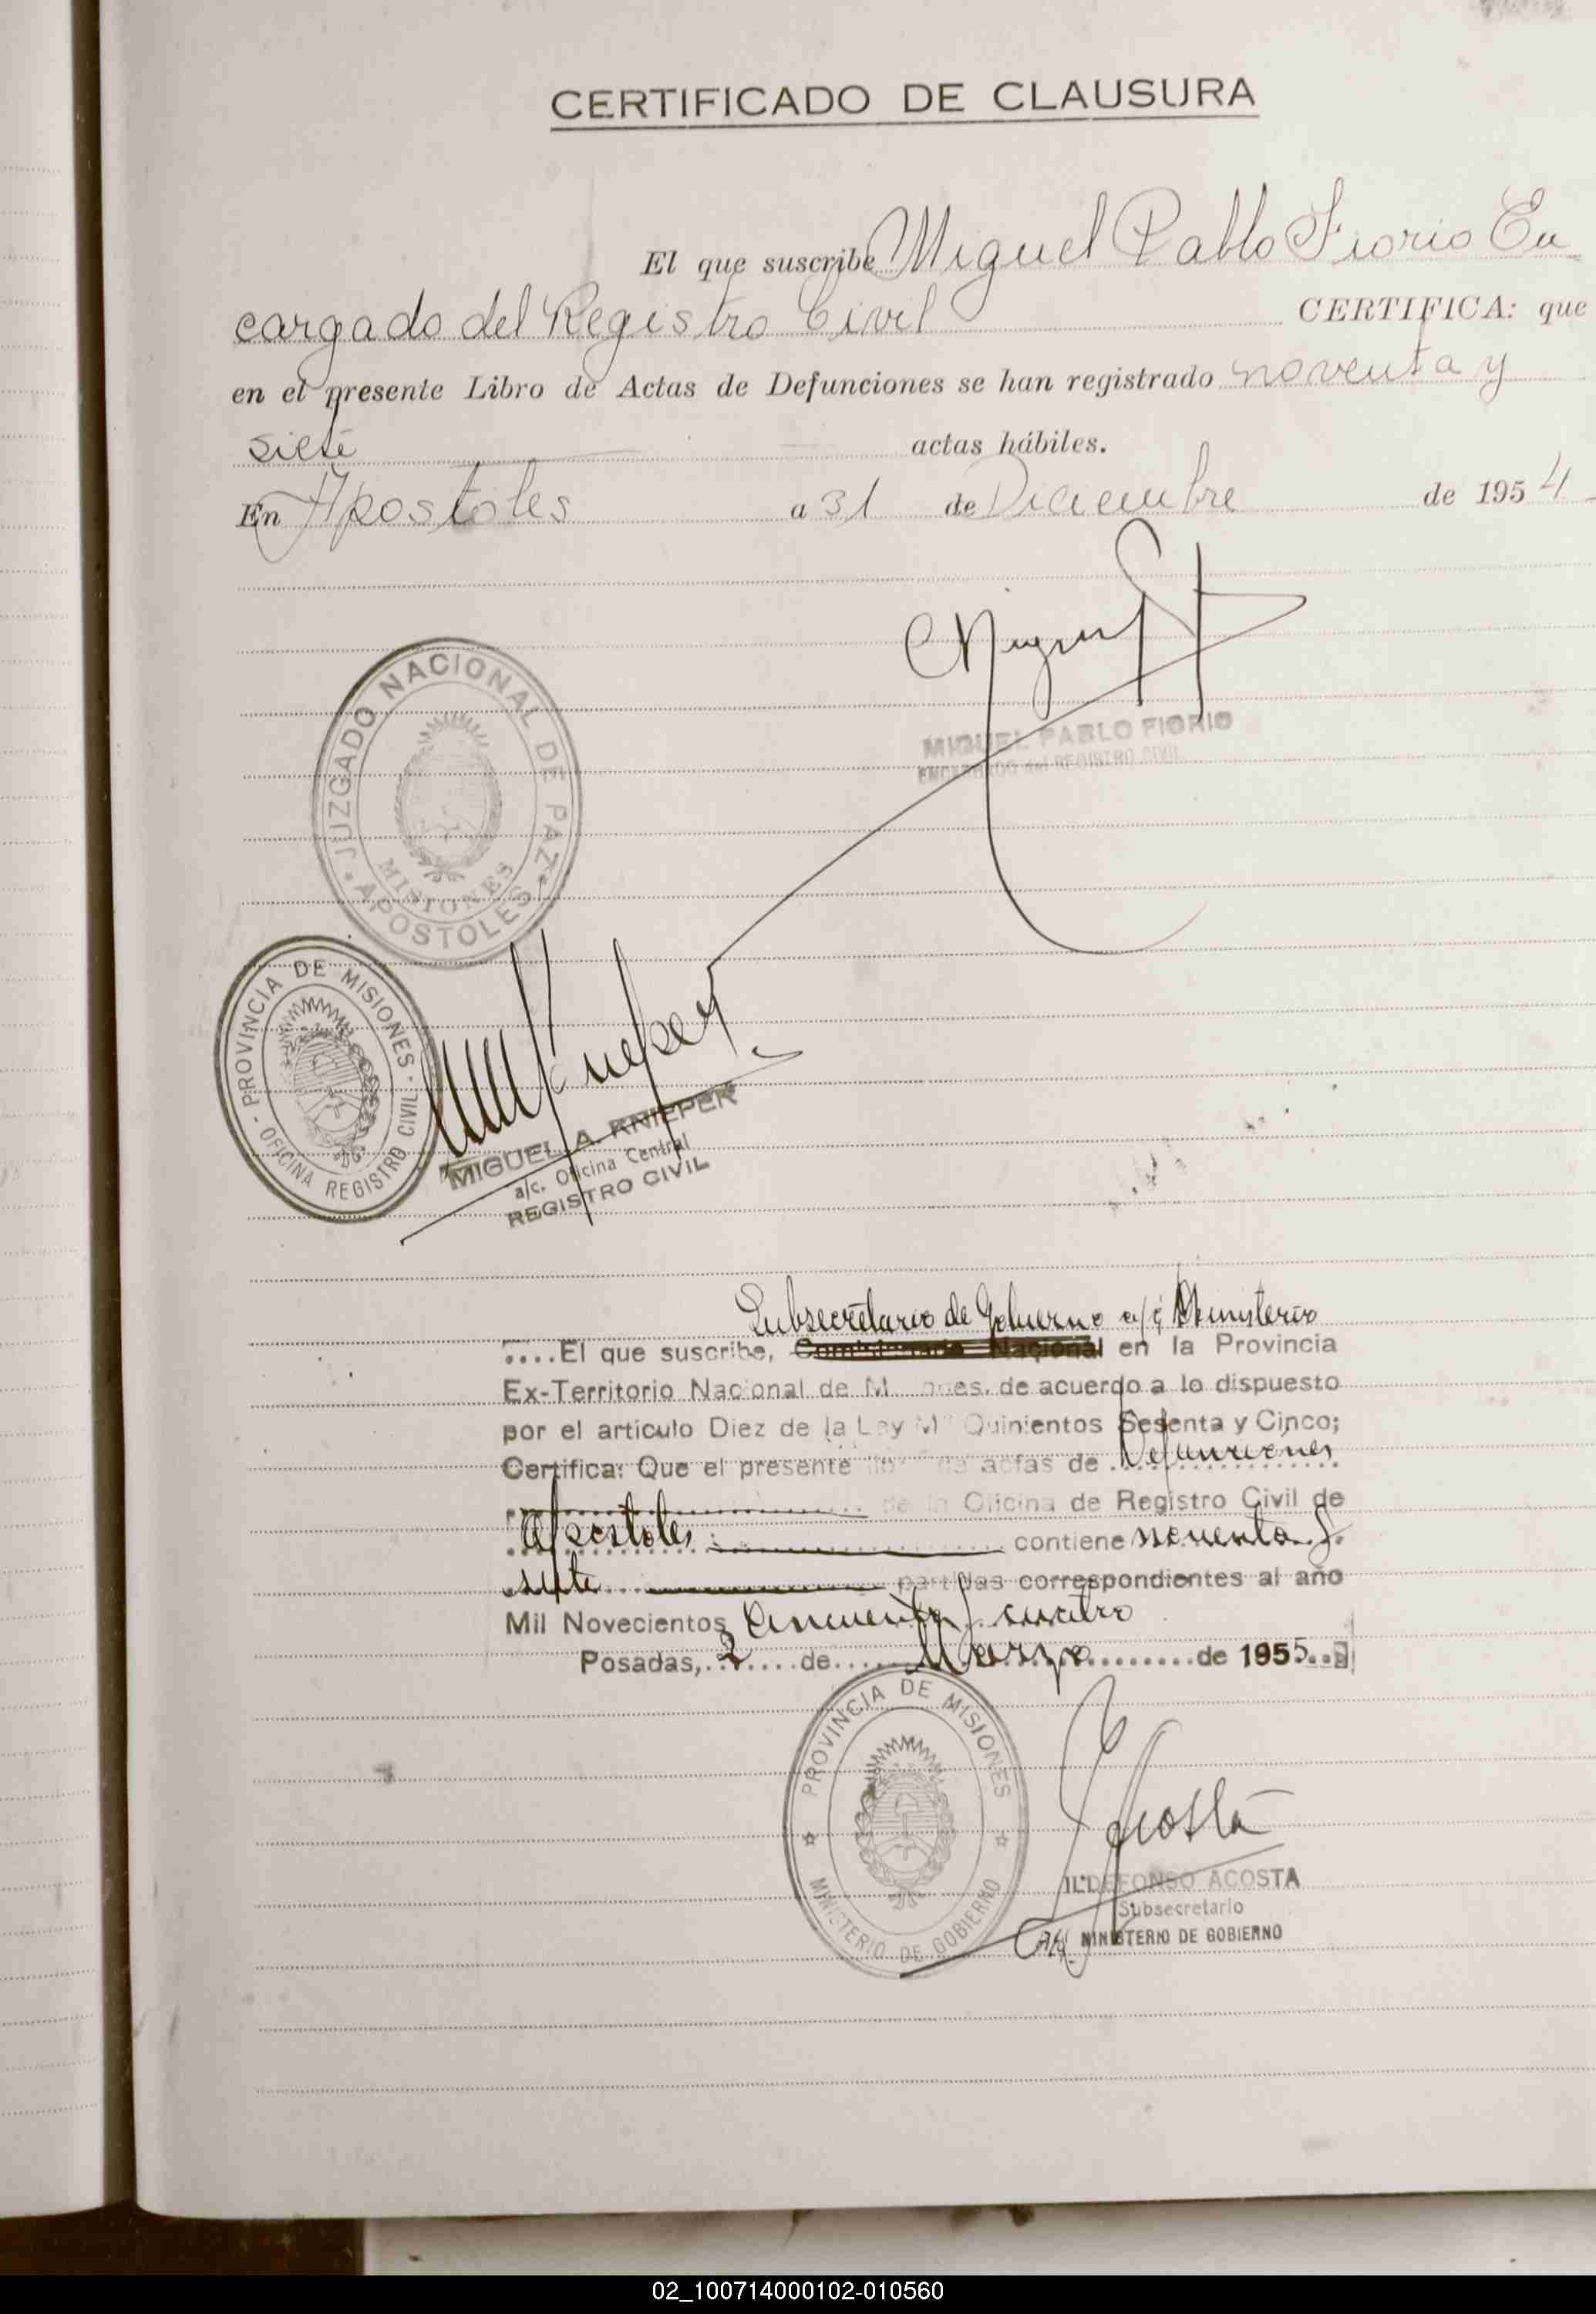 CERTIFICADO DE CLAUSURA
El que suscribe Miguel Pablo Fiorio En
cargado del Registro Civil CERTIFICA: que
en el presente Libro de Actas de Defunciones se han registrado noventa y
siete actas hábiles.
En Apostoles a 31 de Diciembre de 1954
MIGUEL PABLO FIORIO
ENCARGADO del REGISTRO CIVIL
JUZGADO NACIONAL DE PAZ
MISIONES
APOSTOLES
PROVINCIA DE MISIONES
OFICINA REGISTRO CIVIL
MIGUEL A. KNIEPER
a/c. Oficina Central
REGISTRO CIVIL
Subsecretario de Gobierno a/c Ministerio
....El que suscribe, Comisionado Nacional en la Provincia
Ex-Territorio Nacional de M nes, de acuerdo a lo dispuesto
por el artículo Diez de la Ley M Quinientos Sesenta y Cinco;
Certifica: Que el presente actas de Defunciones
de la Oficina de Registro Civil de
Apostoles contiene noventa y
siete partidas correspondientes al año
Mil Novecientos Cincuenta y cuatro
Posadas, 2 de Marzo de 1955
PROVINCIA DE MISIONES
MINISTERIO DE GOBIERNO
Acosta
ILDEFONSO ACOSTA
Subsecretario
MINISTERIO DE GOBIERNO
02_100714000102-010560